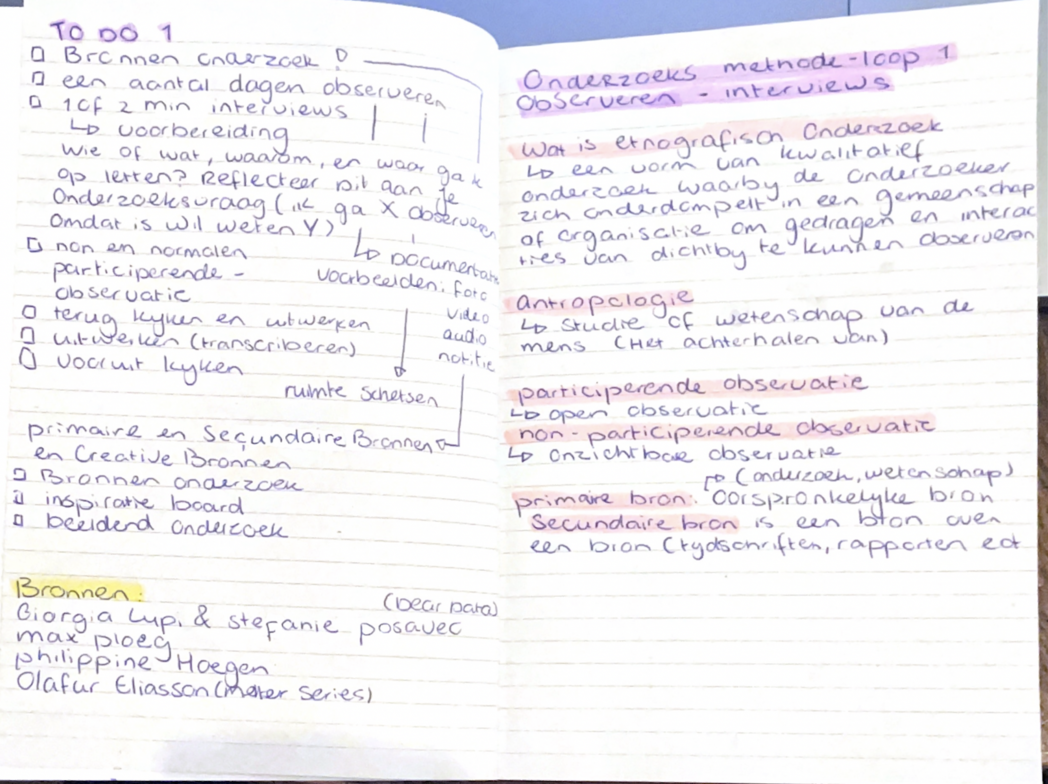 TO DO 1
Bronnen onderzoek !
een aantal dagen observeren
1 of 2 min interviews
↳ voorbereiding
wie of wat, waarom, en waar ga ik
op letten? Reflecteer dit aan je
Onderzoeksvraag (ik ga X observeren
Omdat is wil weten Y)
↳ Documentatie
voorbeelden: foto
video
audio
notitie
ruimte schetsen
non en normalen
participerende -
observatie
terug kyken en uitwerken
uitwerken (transcriberen)
vooruit kyken
primaire en Secundaire Bronnen
en Creative Bronnen
Bronnen onderzoek
inspiratie board
beeldend onderzoek
Bronnen:
(Dear Data)
Giorgia Lupi & stefanie posavec
max ploeg
philippine Hoegen
Olafur Eliasson (meter series)
Onderzoeks methode-loop 1
Observeren - interviews
Wat is etnografisch Onderzoek
↳ een vorm van kwalitatief
onderzoek waarby de Onderzoeker
zich onderdompelt in een gemeenschap
of organisatie om gedragen en interac
ties van dichtby te kunnen observeren
antropologie
↳ studie of wetenschap van de
mens (Het achterhalen van)
participerende observatie
↳ open observatie
non-participerende observatie
↳ onzichtbare observatie
(onderzoek, wetenschap)
primaire bron: Oorspronkelyke bron
Secundaire bron is een bron over
een bron (tydschriften, rapporten ect